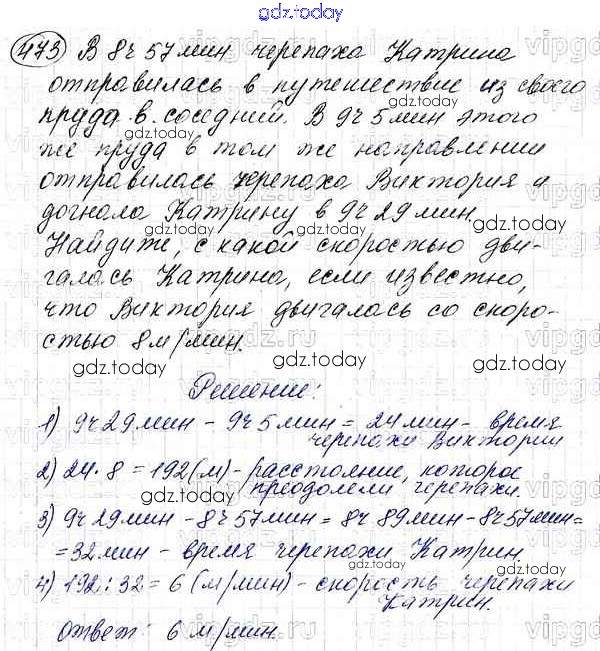 gdz.today
473 В 8ч 57мин черепаха Катрина
отправилась в путешествие из своего
gdz.today
пруда в соседний. В 9ч 5мин этого
gdz.today
же пруда в том же направлении
gdz.today
отправилась черепаха Виктория и
gdz.today
догнала Катрину в 9ч 29 мин.
gdz.today
Найдите, с какой скоростью дви-
галась Катрина, если известно,
gdz.today
что Виктория двигалась со скоро-
стью 8 м/мин.
gdz.today
gdz.today
Решение:
1) 9ч 29мин - 9ч 5мин = 24мин - время
черепахи Виктории
gdz.today
2) 24 · 8 = 192(м) - расстояние, которое
преодолели черепахи.
gdz.today
3) 9ч 29мин - 8ч 57мин = 8ч 89мин - 8ч 57мин =
= 32мин - время черепахи Катрин.
gdz.today
4) 192 : 32 = 6 (м/мин) - скорость черепахи
Катрин.
gdz.today
Ответ: 6 м/мин.
gdz.today